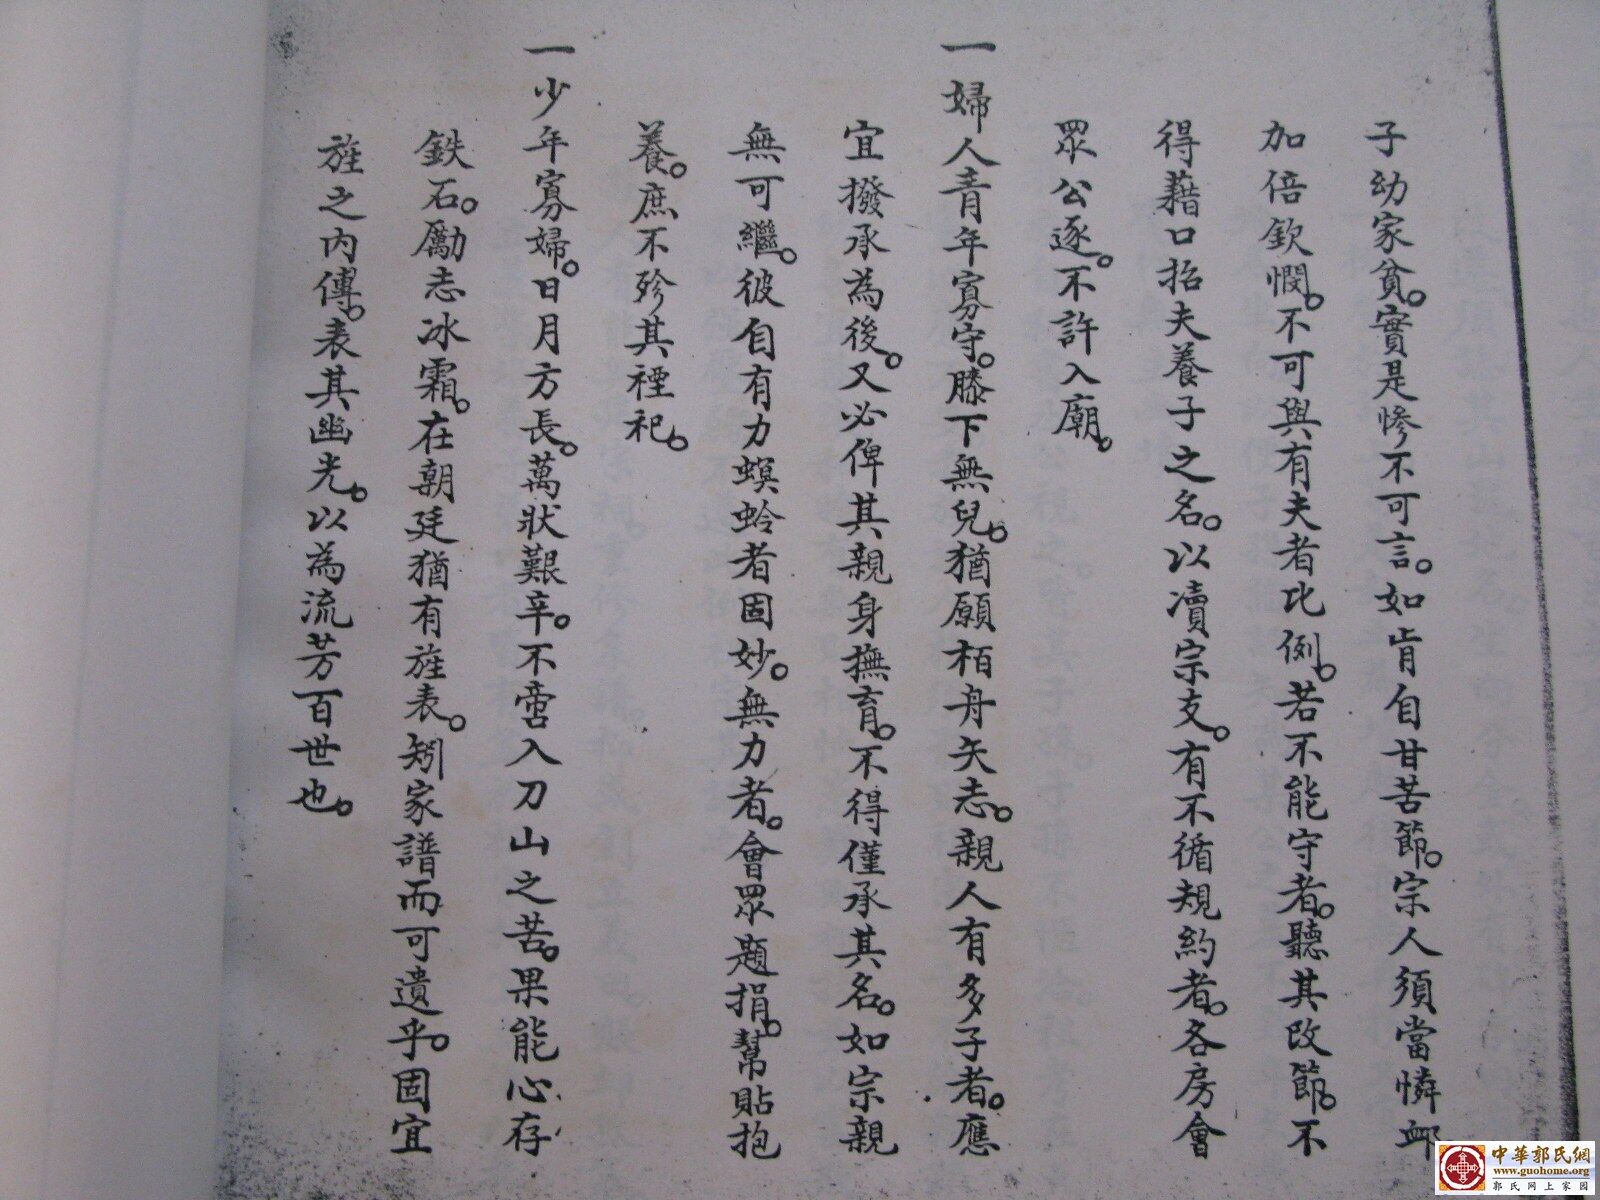 子幼家貧。實是慘不可言。如肯自甘苦節。宗人須當憐卹
加倍欽憫。不可與有夫者比例。若不能守者。聽其改節。不
得藉口招夫養子之名。以瀆宗支。有不循規約者。各房會
眾公逐。不許入廟。
一婦人青年寡守。膝下無兒。猶願栢舟矢志。親人有多子者。應
宜撥承為後。又必俾其親身撫育。不得僅承其名。如宗親
無可繼。彼自有力螟蛉者固妙。無力者。會眾題捐。幫貼抱
養。庶不殄其禋祀。
一少年寡婦。日月方長。萬狀艱辛。不啻入刀山之苦。果能心存
鉄石。勵志冰霜。在朝廷猶有旌表。矧家譜而可遺乎。固宜
旌之內傳。表其幽光。以為流芳百世也。
中華郭氏網
www.guohome.org
郭氏网上家园